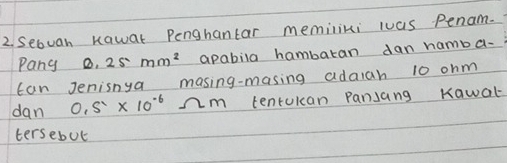 2. Sebuah kawat Penghantar memiliki luas Penam-
Pang 0,25 mm² apabila hambatan dan hamba-
tan Jenisnya masing-masing adalah 10 ohm
dan 0,5 × 10⁻⁶ Ωm tentukan Panjang Kawat
tersebut